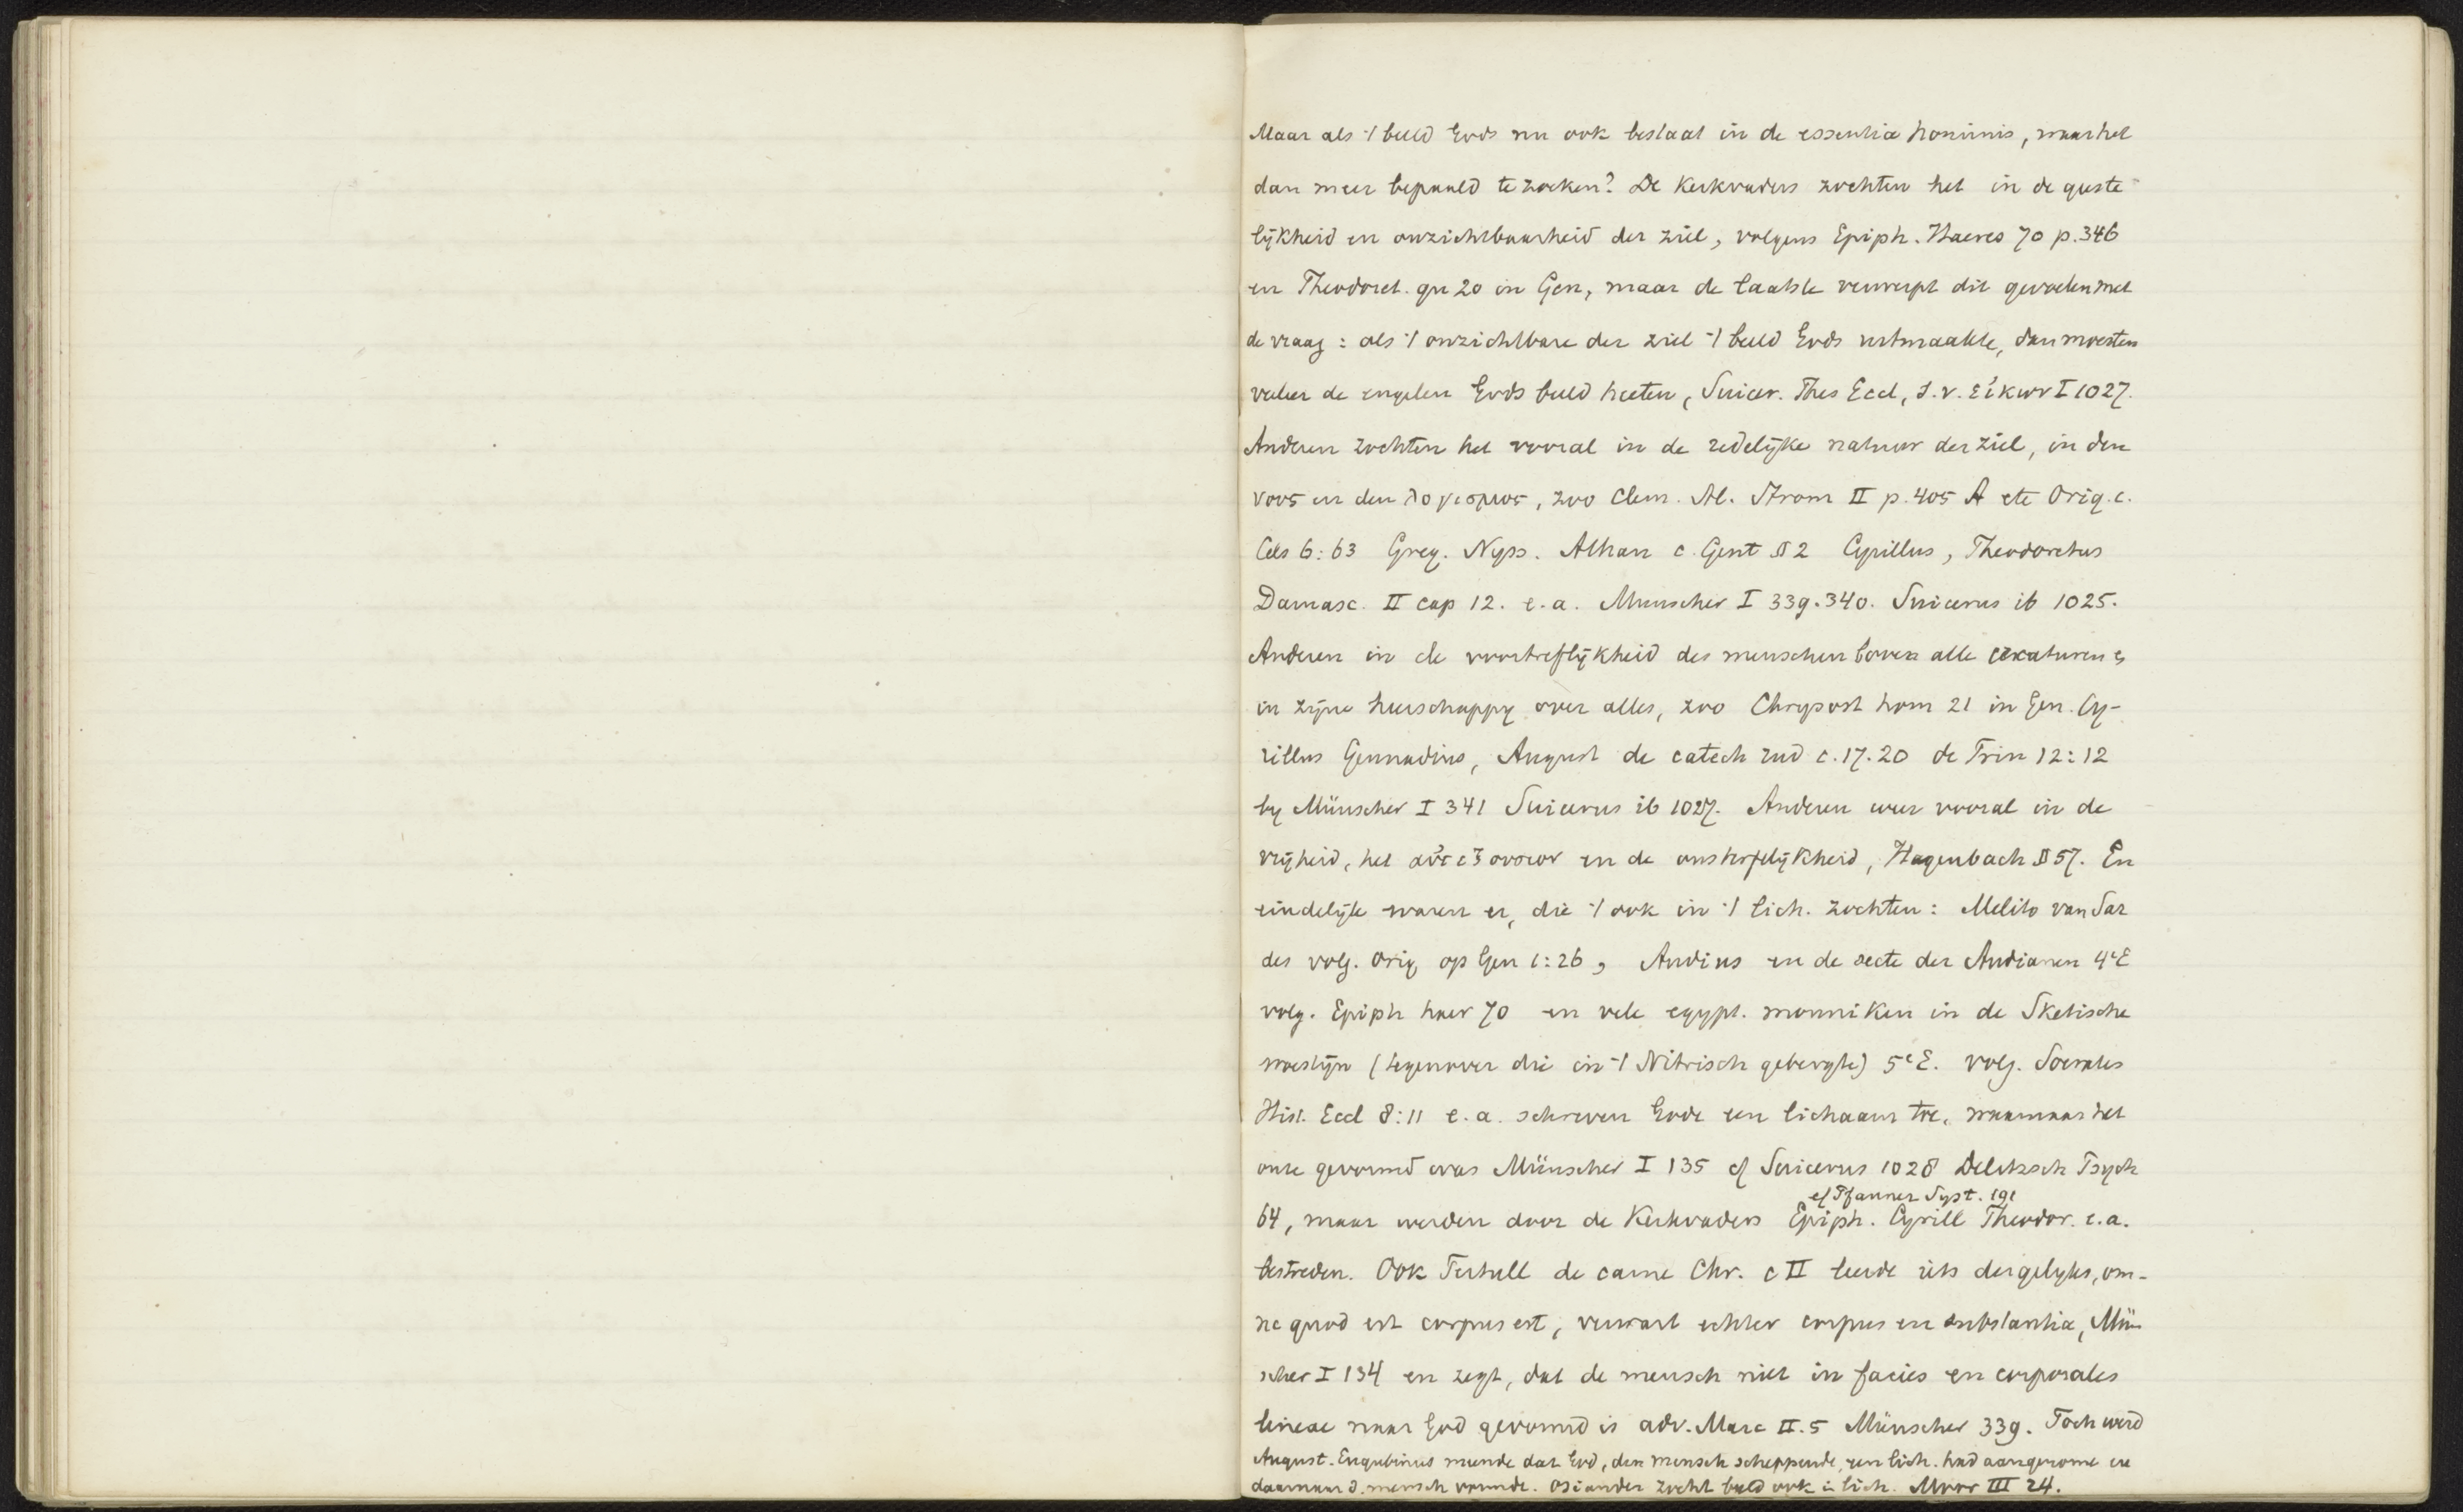 Maar als 't beeld Gods nu ook bestaat in de essentia hominis, waar het
dan meer bepaald te zoeken? De Kerkvaders zochten het in de geeste-
lijkheid en onzichtbaarheid der ziel, volgens Epiph. Haeres 70 p. 346
en Theodoret. qu 20 in Gen, maar de laatste verwerpt dit gevoelen met
de vraag: als 't onzichtbare der ziel 't beeld Gods uitmaakte, dan moesten
veeleer de engelen Gods beeld heeten, Suicer. Thes Eccl, s.v. εἰκων I 1027.
Anderen zochten het vooral in de redelijke natuur der ziel, in den
νους en den λογισμος, zoo Clem. Al. Strom II p. 405 A etc Orig. c.
Cels 6:63 Greg. Nyss. Athan c. Gent § 2 Cyrillus, Theodoretus
Damasc. II cap 12. e.a. Munscher I 339.340. Suicerus ib 1025.
Anderen in de voortreflijkheid des menschen boven alle creaturen en
in zijne heerschappy over alles, zoo Chrysost hom 21 in Gen. Cy-
rillus Gennadius, August de catech rud c. 17.20 de Trin 12:12
by Münscher I 341 Suicerus ib 1027. Anderen weer vooral in de
vrijheid, het αὐτεξουσιον en de onsterfelijkheid, Hagenbach § 57. En
eindelijk waren er, die 't ook in 't lich. zochten: Melito van Sar
des volg. Orig op Gen 1:26, Audius en de secte der Audianen 4e E
volg. Epiph haer 70 en vele egypt. monniken in de Sketische
woestijn (tegenover die in 't Nitrisch gebergte) 5e E. volg. Socrates
Hist. Eccl 8:11 e.a. schreven Gode een lichaam toe, waarnaar het
onze gevormd was Münscher I 135 cf Suicerus 1028 Delitzsch Psych
cf Pfanner Syst. 191
64, maar werden door de Kerkvaders Epiph. Cyrill Theodor. e.a.
bestreden. Ook Tertull de carne Chr. c II leerde iets dergelyks, om-
ne quod est corpus est, verwart echter corpus en substantia, Mün
scher I 134 en zegt, dat de mensch niet in facies en corporales
lineae naar God gevormd is adv. Marc II.5 Münscher 339. Toch werd
August. Eugubinus meende dat God, den mensch scheppende, een lich. had aangenome en
daarnaar d. mensch vormde. Osiander zocht beeld ook in lich. Moor III 24.